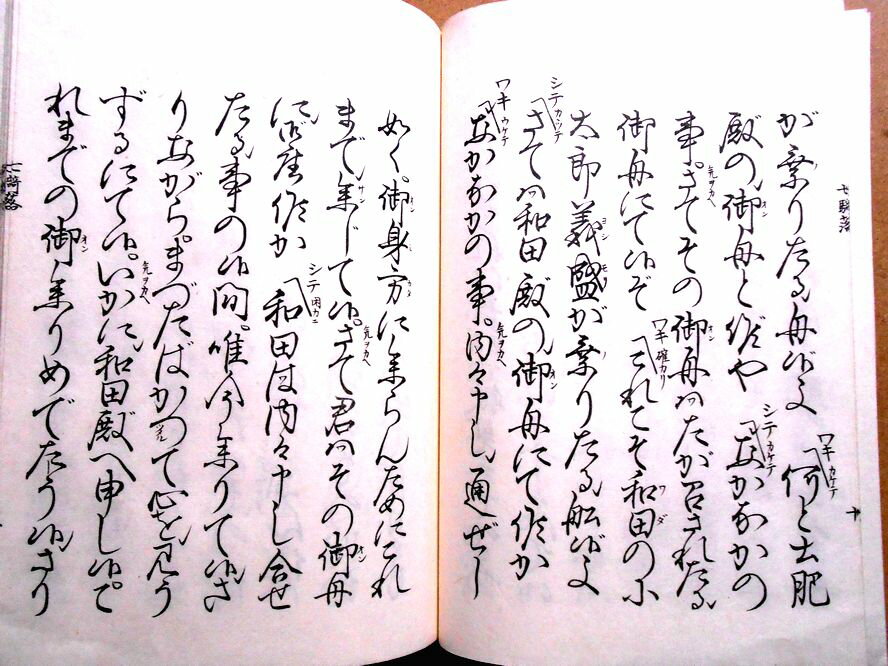 七騎落
が乗りたる舟候よ ワキ カケテ「何と土肥
殿の御舟と候や シテ カケテ「なかなかの
事。さてその御舟ハたが召されたる
御舟にて候ぞ ワキ 確カリ「これこそ和田の小
太郎義盛が乗りたる船候よ
シテ カヽツテ「さてハ和田殿の御舟にて候か
ワキ ウケテ「なかなかの事。内々申し通ぜし
如く。御身方に参らんためにこれ
まで参じて候。さて君ハその御舟
に御座候か シテ 閑カニ「和田は内々申し合せ
たる事の候間。唯今参りて候さ
りながら。まづたばかつて心を見う
ずるにて候。いかに和田殿へ申し候。こ
れまでの御参りめでたう候さり
七騎落